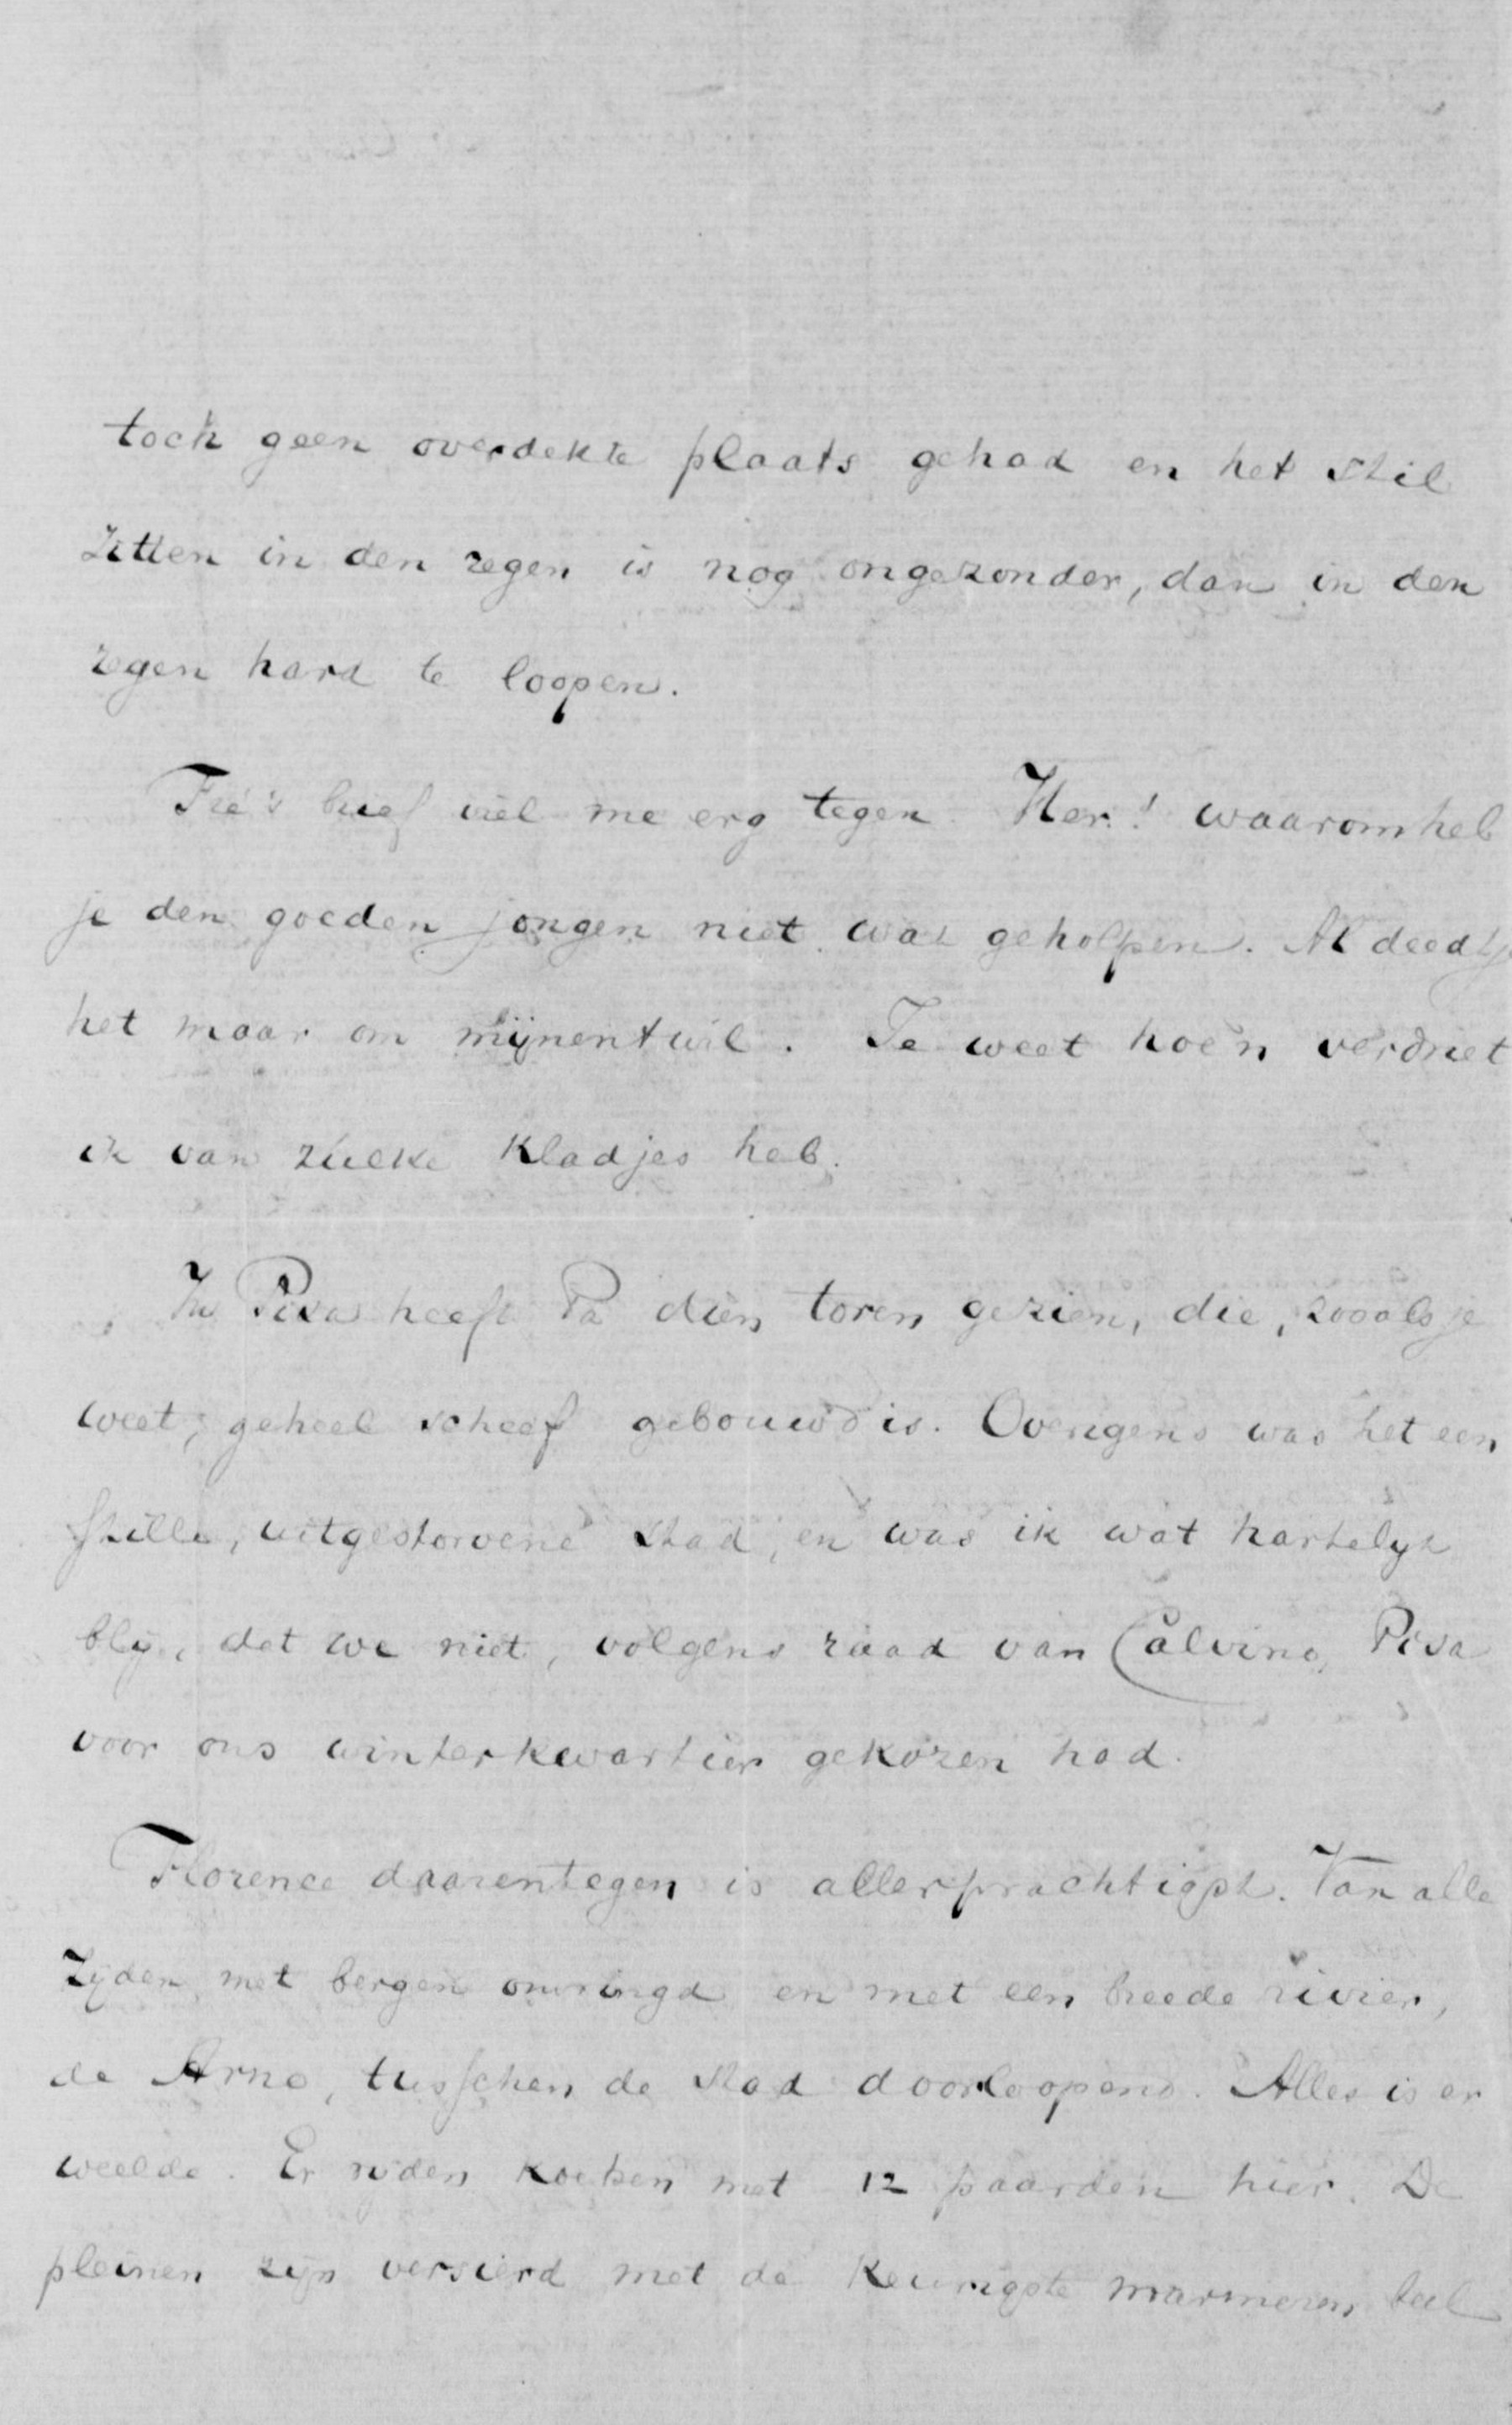 toch geen overdekte plaats gehad en het stil
zitten in den regen is nog ongezonder, dan in den
regen hard te loopen.
Fré's brief viel me erg tegen. Her.! waarom heb
je den goeden jongen niet wat geholpen. Al deedt je
het maar om mijnentwil. Je weet hoe'n verdriet
ik van zulke kladjes heb.
In Pisa heeft Pa dien toren gezien, die, zooals je
weet, geheel scheef gebouwd is. Overigens was het een
stille, uitgestorvene stad, en was ik wat hartelyk
bly, dat we niet, volgens raad van Calvino, Pisa
voor ons winterkwartier gekozen had.
Florence daarentegen is allerprachtigst. Van alle
zyden met bergen omringd en met een breede rivier,
de Arno, tusschen de stad doorloopend. Alles is er
weelde. Er ryden koetsen met 12 paarden hier. De
pleinen zyn versierd met de keurigste marmeren beel